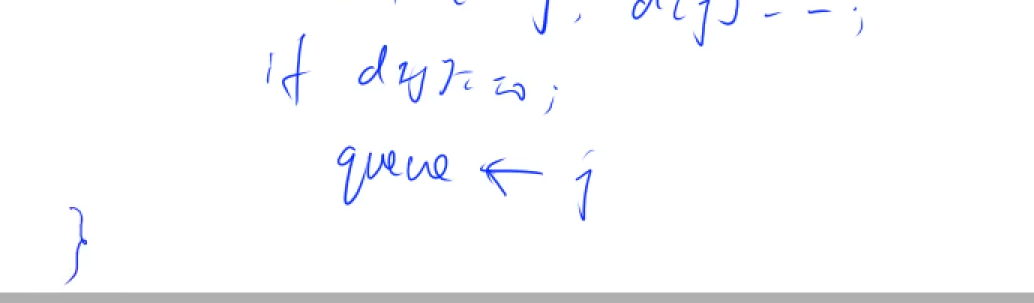 j, d[j]--;
if d[j]==0;
queue ← j
}